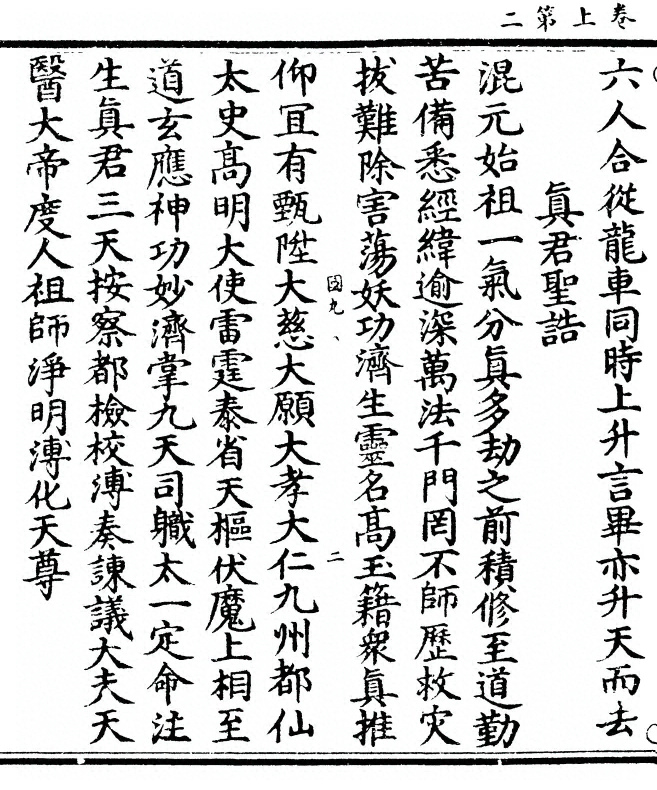 卷上第二
六人合從龍車同時上升言畢亦升天而去
眞君聖誥
混元始祖一氣分眞多劫之前積修至道勤
苦備悉經緯逾深萬法千門罔不師歷救灾
拔難除害蕩妖功濟生靈名高玉籍衆眞推
國九
二
仰冝有甄陞大慈大願大孝大仁九州都仙
太史高明大使雷霆泰省天樞伏魔上相至
道玄應神功妙濟掌九天司職太一定命注
生眞君三天按察都檢校溥奏諫議大夫天
醫大帝度人祖師淨明溥化天尊